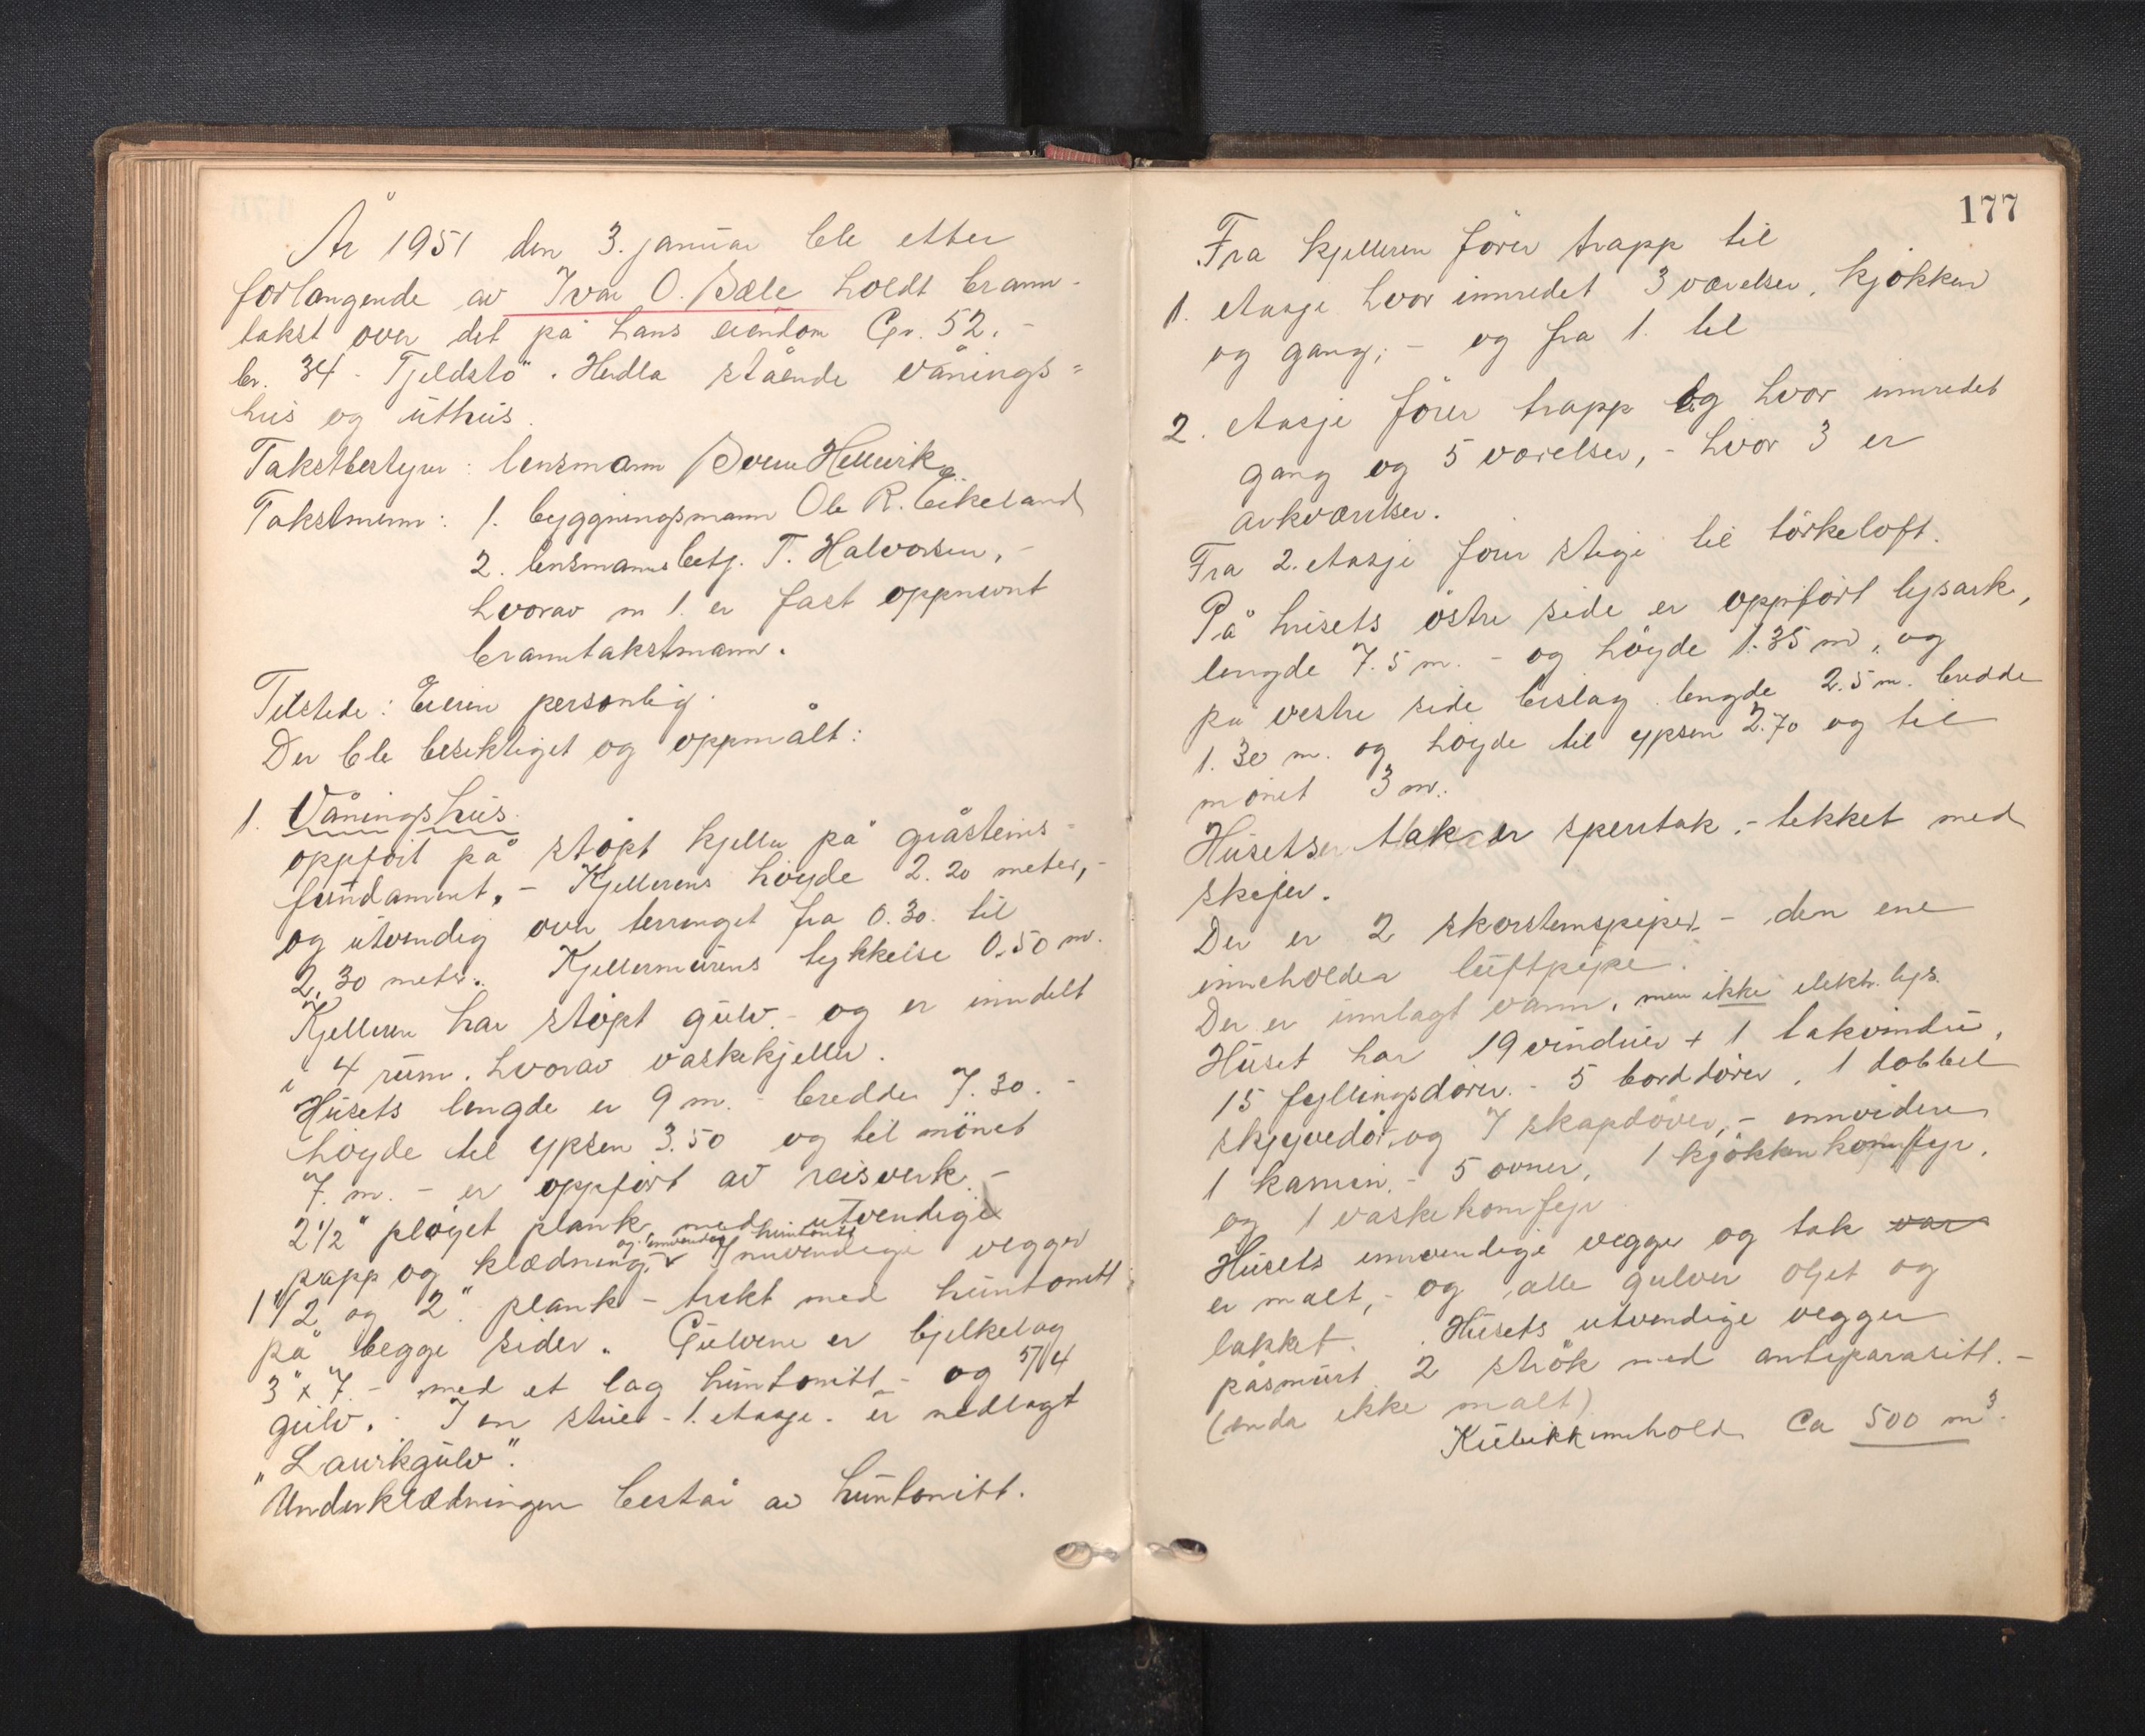 År 1951 den 3. januar ble etter
forlangende av Ivar O. Sæle holdt brann-
takst over det på hans eiendom Gr. 52. -
br. 34 - Tjeldstö". Herdla stående vånings=
hus og uthus.
Takstbestyrer: lensmann
Takstmenn: 1. byggningsmann Ole R. Eikeland
2. lensmannsbetj. T. Halvorsen, -
hvorav nr 1. er fast oppnevnt
branntakstmann.
Tilstede: Eieren personlig.
Der ble besiktiget og oppmålt:
1. Våningshus.
oppført på støpt kjeller på gråsteins-
fundament. - Kjellerens höyde 2.20 meter, -
og utvendig over terrenget fra 0.30. til
2.30 meter. Kjellermurens tykkelse 0.50 m.
Kjelleren har støpt gulv. - og er inndelt
i 4 rum. hvorav vaskekjeller.
Husets lengde er 9 m. - bredde 7.30. -
höyde til ypsen 3.50 og til mönet
7. m. - er oppfört av reisverk. -
2 1/2" plöyet plank med utvendige
og innvendig huntonitt
papp og klædning. Innvendige vegger
1 1/2 og 2" plank - trekt med huntonitt
på begge sider. Gulvene er bjelkelag
3" x 7" - med et lag huntonitt - og 5/4
gulv. - I en stue - 1. etasje - er nedlagt
"Laurkgulv".
Underklædningen består av huntonitt.
177
Fra kjelleren förer trapp til
1. etasje hvor innredet 3 værelser, kjökken
og gang; - og fra 1. til
2. etasje förer trapp og hvor innredet
gang og 5 værelser, - hvor 3 er
arkværelser.
Fra 2. etasje förer stige til törkeloft.
På husets östre side er oppfört lysark,
lengde 7.5 m. - og höyde 1.35 m, og
på vestre side bislag lengde 2.5 m. bredde
1.30 m. og höyde til ypsen 2.70 og til
mönet 3 m.
Husets tak er sperrtak, - tekket med
skifer.
Der er 2 skorstenspiper - den ene
inneholder luftpipe.
Der er innlagt vann, men ikke elektr. lys.
Huset har 19 vinduer + 1 takvindu,
15 fyllingsdörer - 5 borddörer, 1 dobbel
skyvedör og 7 skapdörer, - innvidere
1 kamin, - 5 ovner, 1 kjökkenkomfyr,
og 1 vaskekomfyr
Husets innvendige vegger og tak var
er malt, - og alle gulver oljet og
lakket. Husets utvendige vegger
påsmurt 2 strök med antiparasitt. -
(enda ikke malt)
Kubikkinnhold Ca 500 m³.